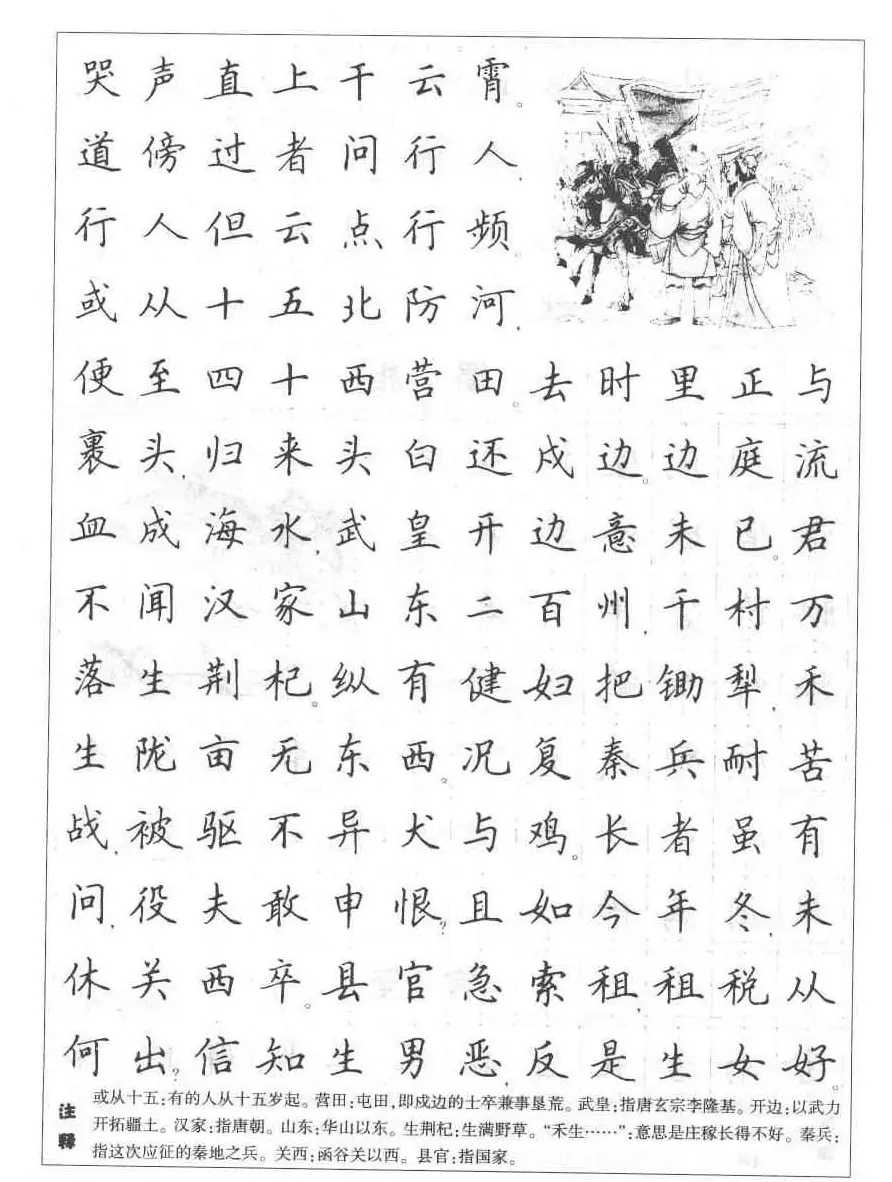 哭声直上干云霄。
道傍过者问行人,
行人但云点行频
或从十五北防河,
便至四十西营田。去时里正与
裹头,归来头白还戍边。边庭流
血成海水,武皇开边意未已。君
不闻汉家山东二百州,千村万
落生荆杞。纵有健妇把锄犁,禾
生陇亩无东西。况复秦兵耐苦
战,被驱不异犬与鸡。长者虽有
问,役夫敢申恨?且如今年冬,未
休关西卒。县官急索租,租税从
何出。信知生男恶,反是生女好。
注释
或从十五:有的人从十五岁起。营田:屯田,即戍边的士卒兼事垦荒。武皇:指唐玄宗李隆基。开边:以武力
开拓疆土。汉家:指唐朝。山东:华山以东。生荆杞:生满野草。“禾生……”:意思是庄稼长得不好。秦兵:
指这次应征的秦地之兵。关西:函谷关以西。县官:指国家。